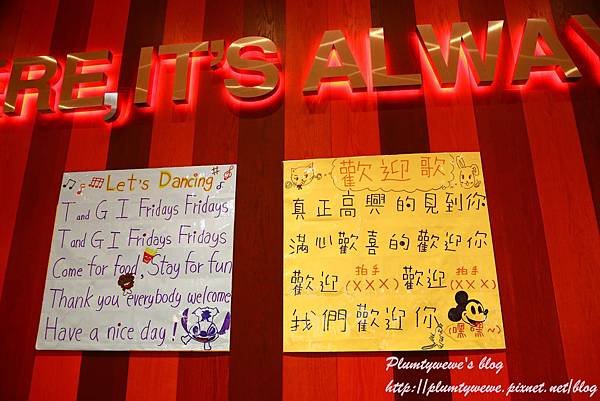 ERE, IT'S ALWAY
Let's Dancing
T and G I Fridays Fridays
T and G I Fridays Fridays
Come for food, Stay for fun
Thank you everybody welcome
Have a nice day!
歡迎歌
真正高興的見到你
滿心歡喜的歡迎你
歡迎(拍手XXX)歡迎(拍手XXX)
我們歡迎你(嘿嘿~)
Plumtywewe's blog
http://plumtywewe.pixnet.net/blog